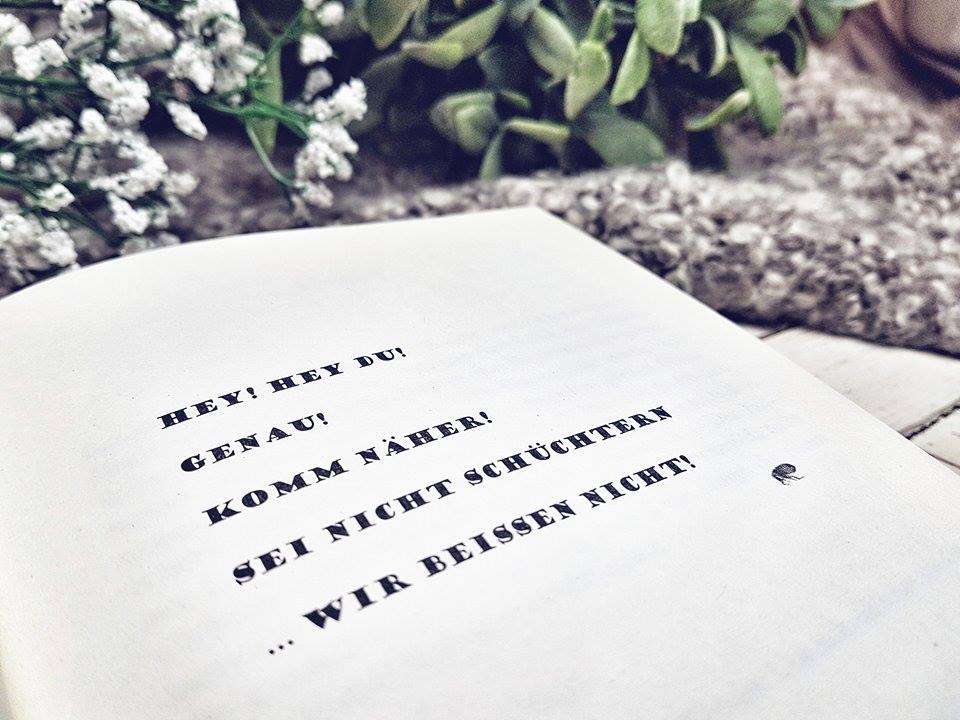 HEY! HEY DU!
GENAU!
KOMM NÄHER!
SEI NICHT SCHÜCHTERN
... WIR BEISSEN NICHT!